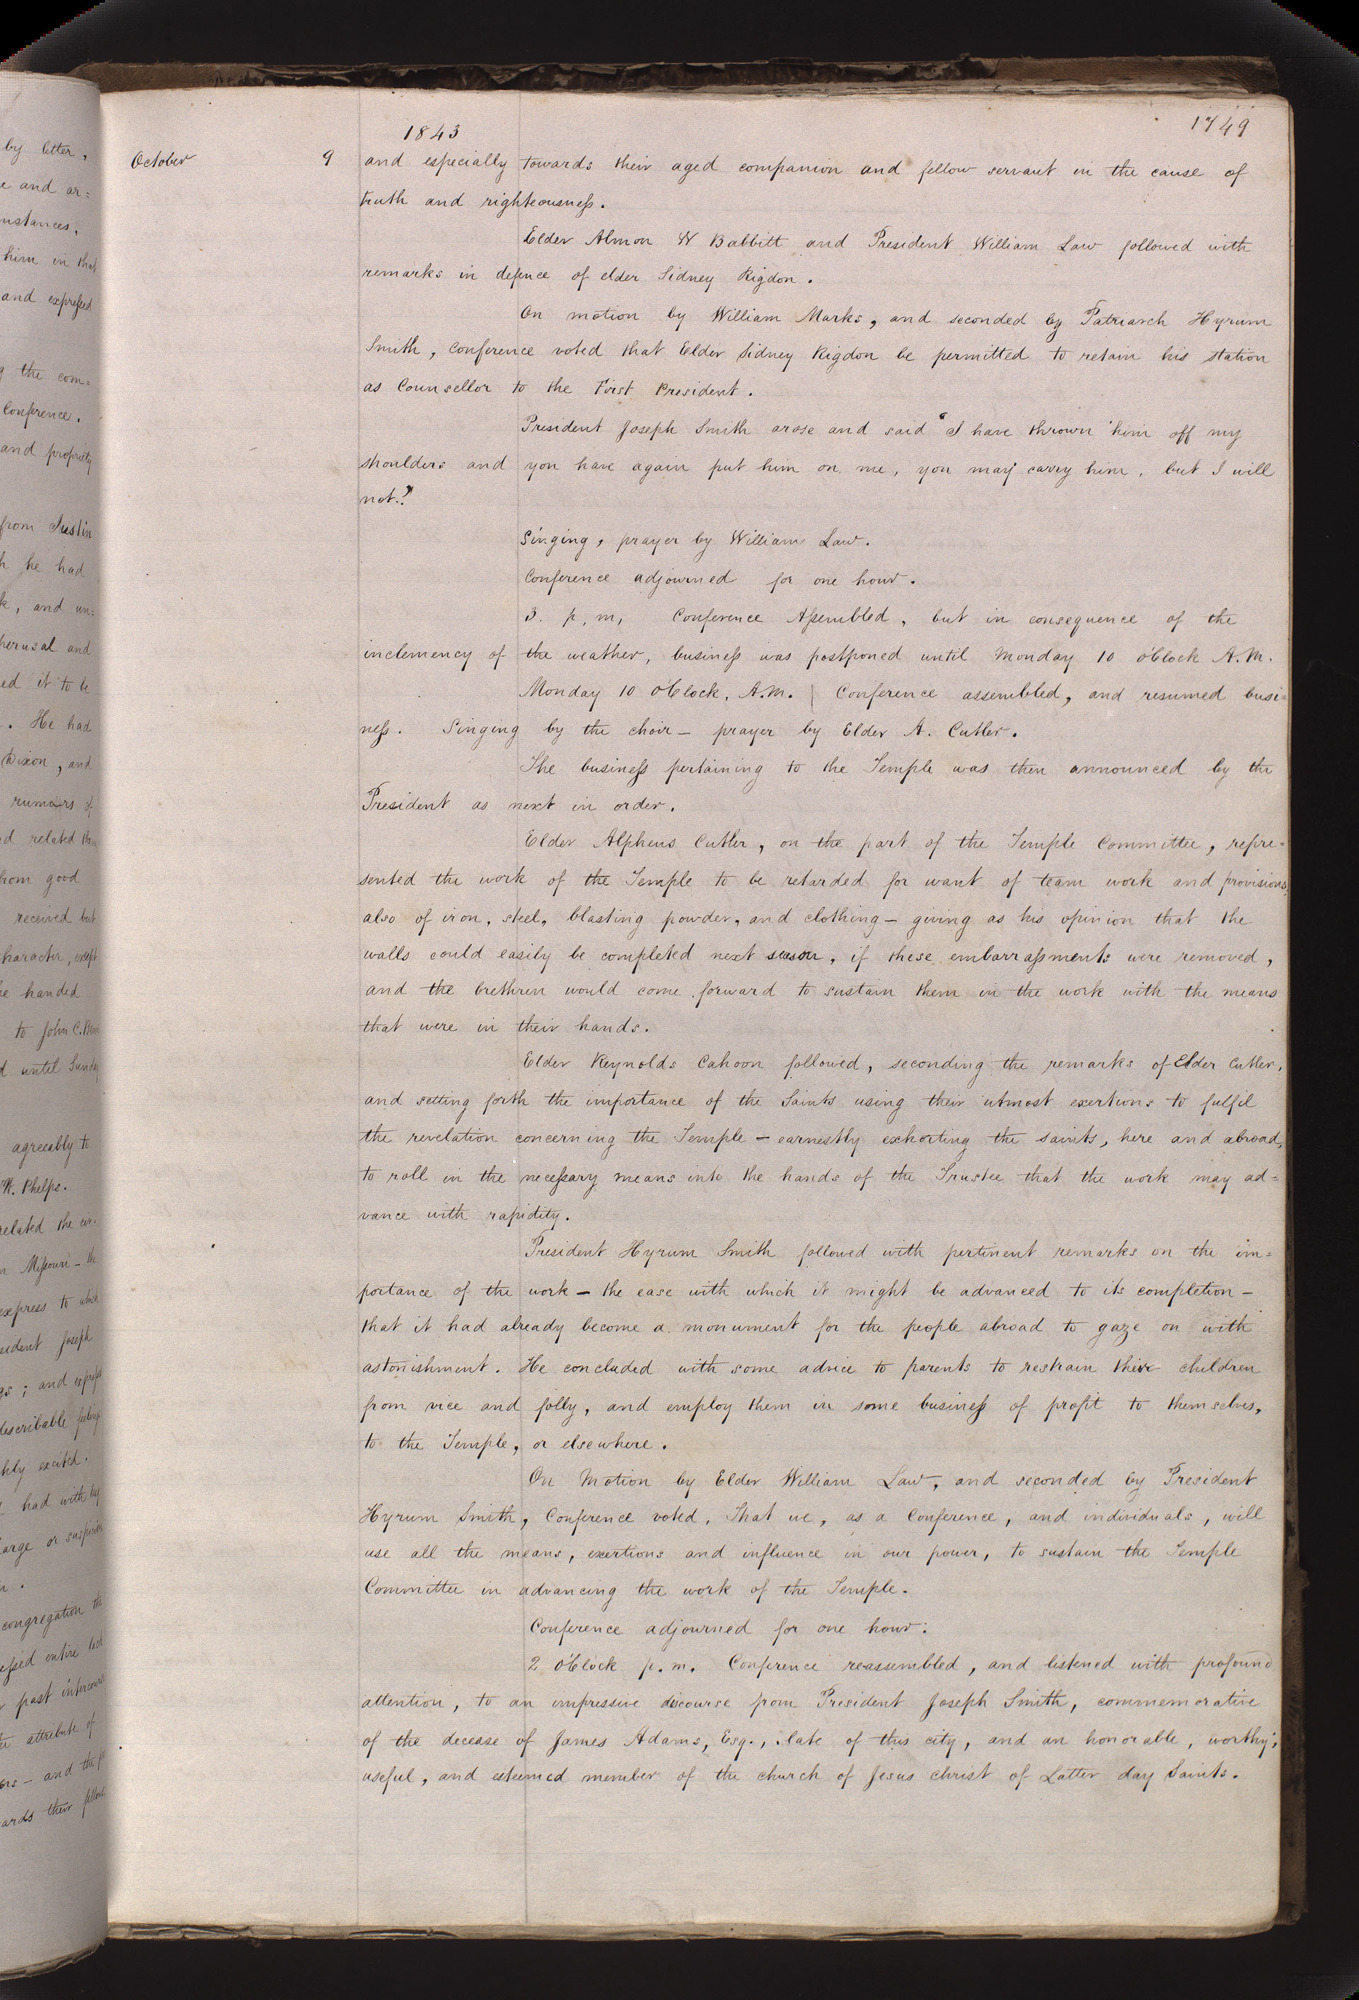 by letter,
e and ar=
nstances.
him in that
and expressed
g the com=
Conference.
and propriety
from Justin
h he had
k, and un=
perusal and
ed it to be
. He had
Dixon, and
rumors of
d related the
from good
received but
character, except
he handed
to John C.
d until Sunday
agreeably to
W. Phelps.
related the cir-
n Missouri - the
express to which
sident Joseph
gs; and
describable feelings
hly excited.
had with
large or suspicion
n.
congregation the
essed entire lack
r past intercourse
attribute of
ors - and the
ards their fellow
1843
1749
October 9 and especially towards their aged companion and fellow servant in the cause of
truth and righteousness.
Elder Almon W Babbitt and President William Law followed with
remarks in defence of elder Sidney Rigdon.
On motion by William Marks, and seconded by Patriarch Hyrum
Smith, Conference voted that Elder Sidney Rigdon be permitted to retain his station
as Counsellor to the First President.
President Joseph Smith arose and said "I have thrown him off my
shoulders and you have again put him on me, you may carry him, but I will
not."
Singing, prayer by William Law.
Conference adjourned for one hour.
3. p.m, Conference Assembled, but in consequence of the
inclemency of the weather, business was postponed until Monday 10 o'Clock A.M.
Monday 10 O'Clock, A.M. | Conference assembled, and resumed busi=
ness. Singing by the choir - prayer by Elder A. Cutler.
The business pertaining to the Temple was then announced by the
President as next in order.
Elder Alpheus Cutler, on the part of the Temple Committee, repre=
sented the work of the Temple to be retarded for want of team work and provisions
also of iron, steel, blasting powder, and clothing - giving as his opinion that the
walls could easily be completed next season, if these embarrassments were removed,
and the brethren would come forward to sustain them in the work with the means
that were in their hands.
Elder Reynolds Cahoon followed, seconding the remarks of Elder Cutler,
and setting forth the importance of the Saints using their utmost exertions to fulfil
the revelation concerning the Temple - earnestly exhorting the saints, here and abroad,
to roll in the necessary means into the hands of the Trustee that the work may ad=
vance with rapidity.
President Hyrum Smith followed with pertinent remarks on the im=
portance of the work - the ease with which it might be advanced to its completion -
that it had already become a monument for the people abroad to gaze on with
astonishment. He concluded with some advice to parents to restrain their children
from vice and folly, and employ them in some business of profit to themselves,
to the Temple, or elsewhere.
On Motion by Elder William Law, and seconded by President
Hyrum Smith, Conference voted, That we, as a Conference, and individuals, will
use all the means, exertions and influence in our power, to sustain the Temple
Committee in advancing the work of the Temple.
Conference adjourned for one hour.
2 O'Clock p.m. Conference reassembled, and listened with profound
attention, to an impressive discourse from President Joseph Smith, commemorative
of the decease of James Adams, Esq., late of this city, and an honorable, worthy,
useful, and esteemed member of the church of Jesus Christ of Latter day Saints.